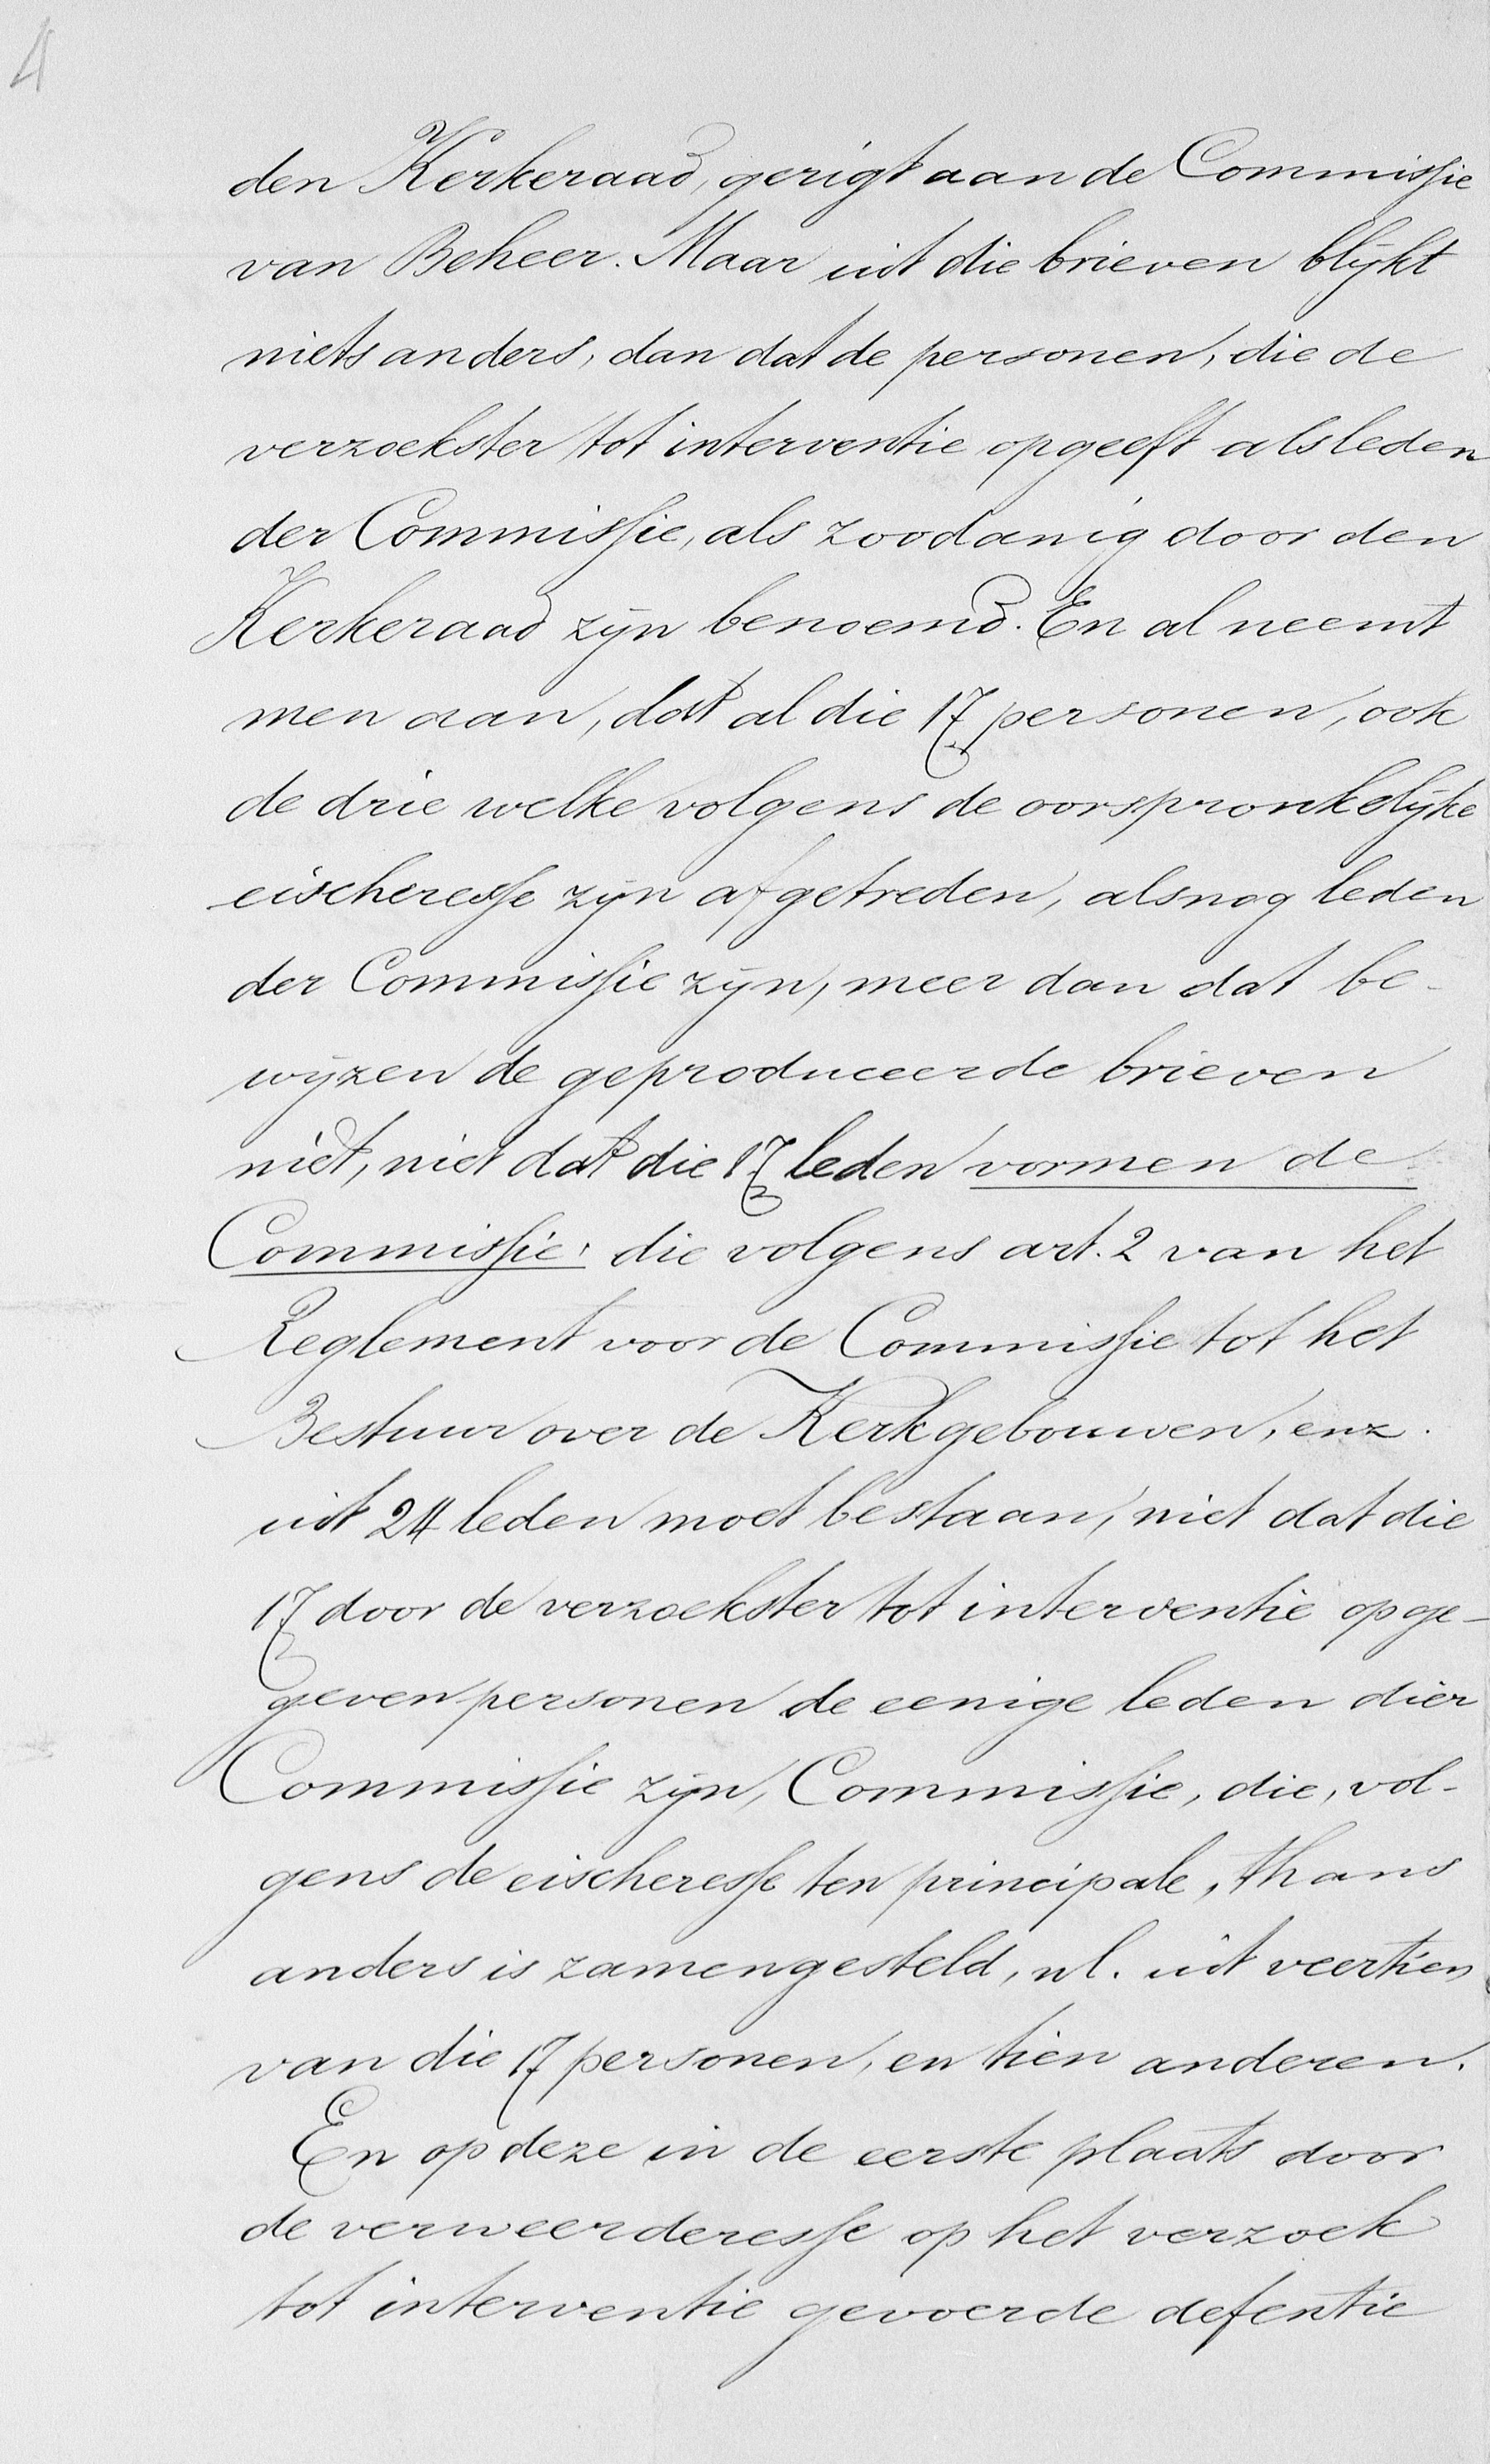 4
den Kerkeraad, gerigt aan de Commissie
van Beheer. Maar uit die brieven blijkt
niets anders, dan dat de personen, die de
verzoekster tot interventie opgeeft als leden
der Commissie, als zoodanig door den
Kerkeraad zijn benoemd. En al neemt
men aan, dat al die 17 personen, ook
de drie welke volgens de oorspronkelijke
eischeresse zijn afgetreden, alsnog leden
der Commissie zijn, meer dan dat be-
wijzen de geproduceerde brieven
niet, niet dat die 17 leden vormen de
Commissie: die volgens art. 2 van het
Reglement voor de Commissie tot het
Bestuur over de Kerkgebouwen, enz.
uit 24 leden moet bestaan, niet dat die
17 door de verzoekster tot interventie opge-
geven personen de eenige leden dier
Commissie zijn, Commissie, die, vol-
gens de eischeresse ten principale, thans
anders is zamengesteld, nl. uit veertien
van die 17 personen, en tien anderen.
En op deze in de eerste plaats door
de verweerderesse op het verzoek
tot interventie gevoerde defentie